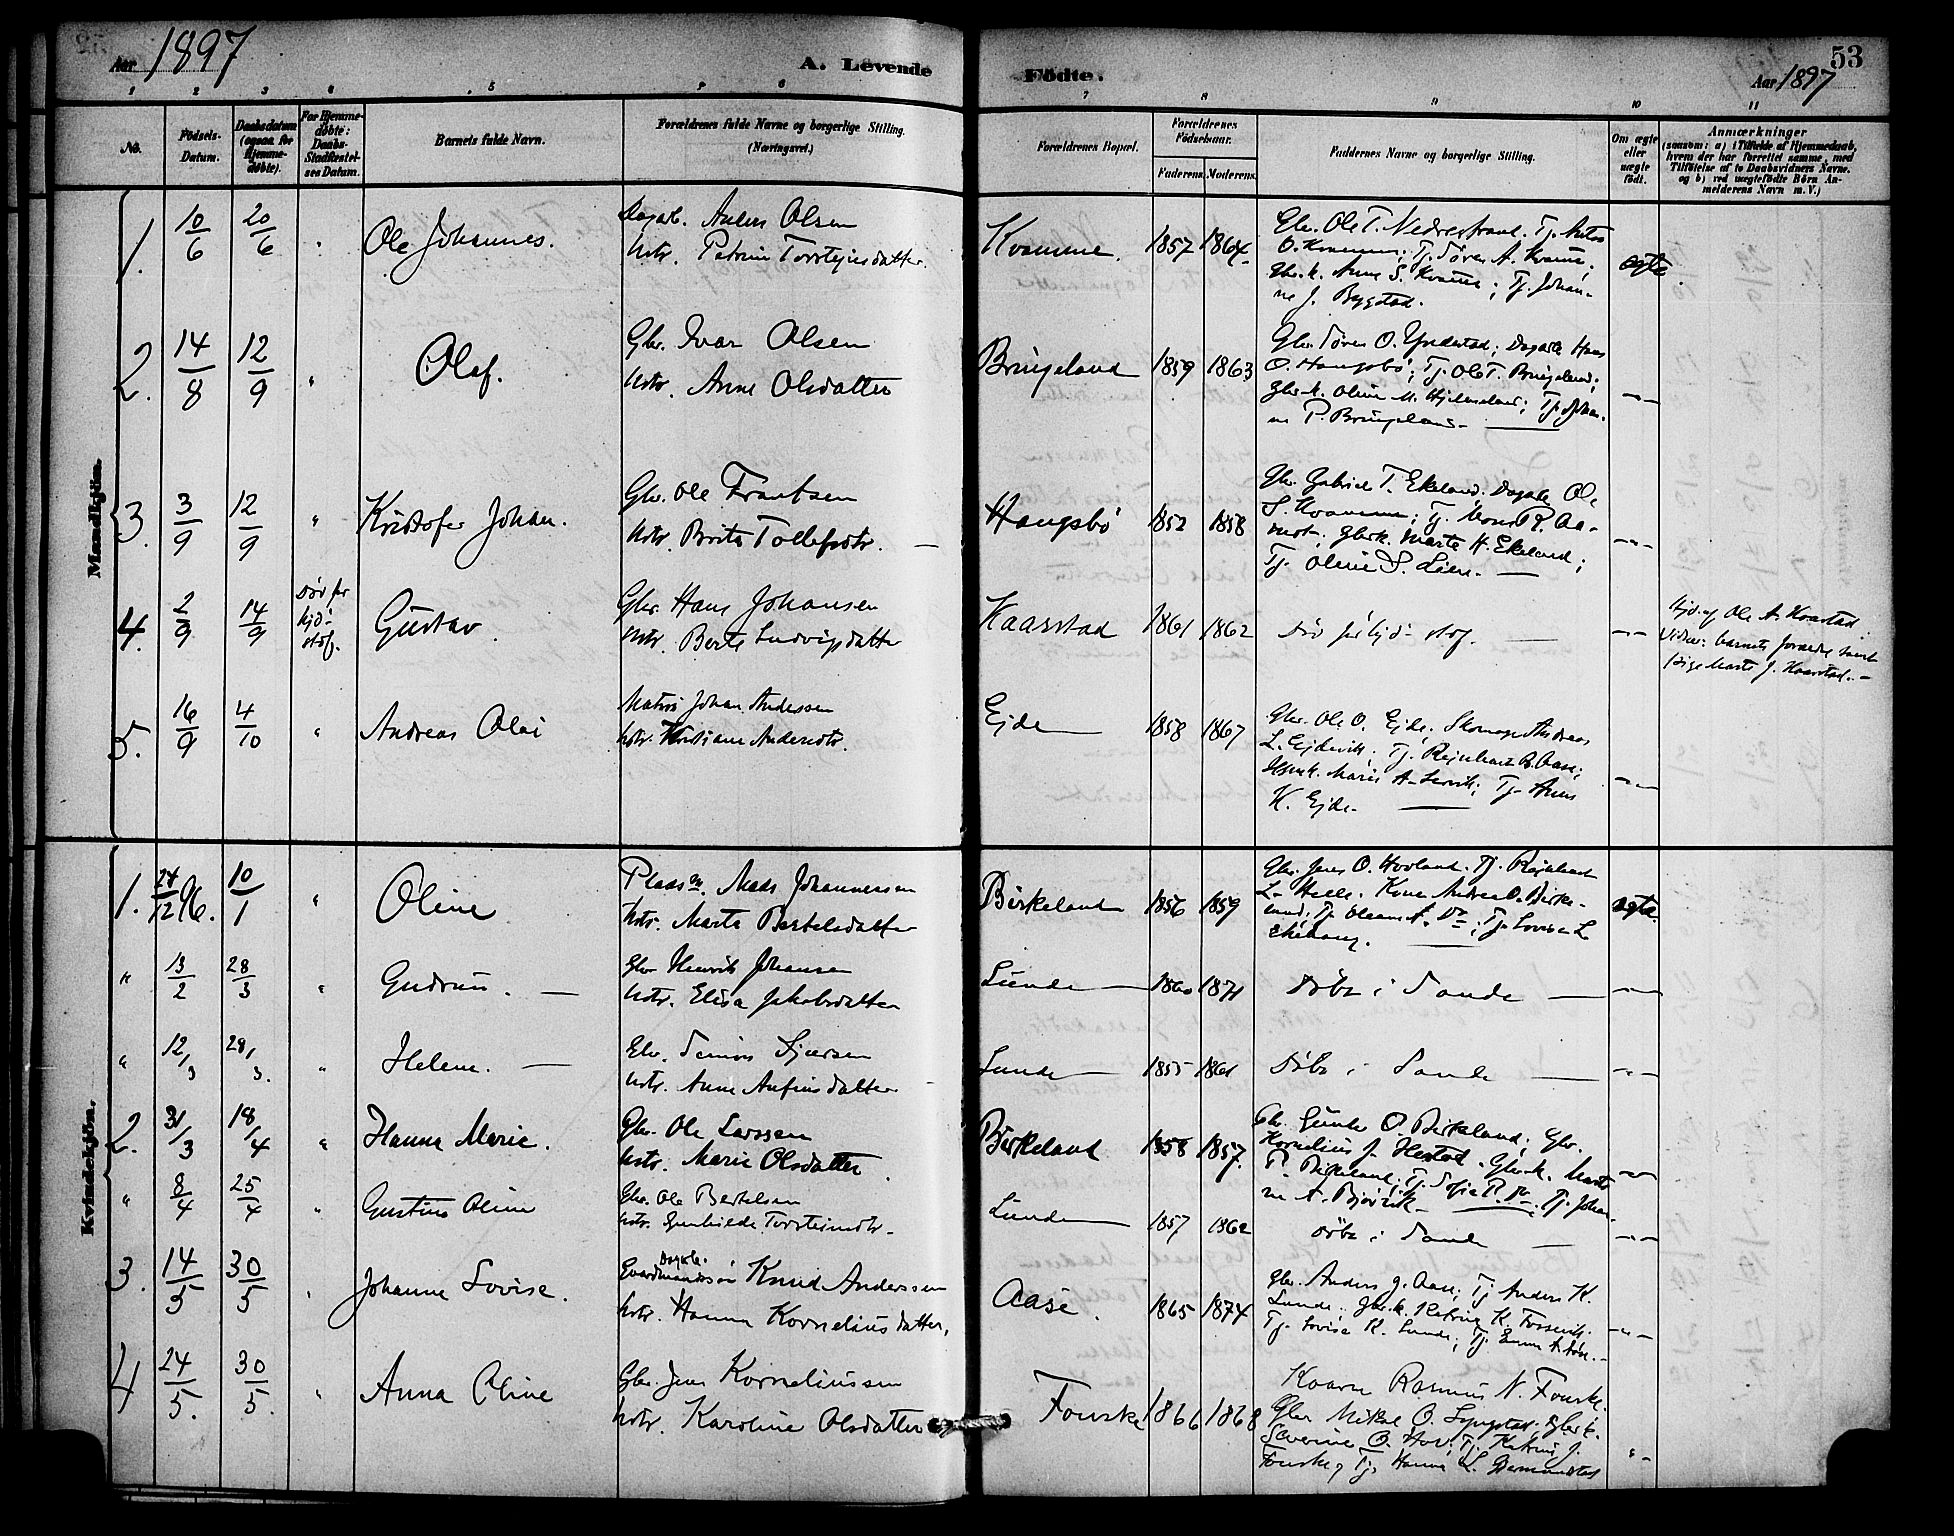 Aar 1897
A. Levende
Födte.
53
Aar 1897
1 2 3 4 5 6
7 8 9 10 11
No.
Födsels-
Datum.
Daabsdatum
(ogsaa for
Hjemme-
döbte).
For Hjemme-
döbte:
Daabs-
Stadfæstel-
ses Datum.
Barnets fulde Navn.
Forældrenes fulde Navne og borgerlige Stilling.
(Næringsvei.)
Forældrenes Bopæl.
Forældrenes
Födselsaar.
Faderens. Moderens.
Faddernes Navne og borgerlige Stilling.
Om ægte
eller
uægte
födt.
Anmærkninger
(saasom: a) i Tilfælde af Hjemmedaab,
hvem der har forrettet samme, med
Tilföielse af to Daabsvidners Navne.
og b) ved uægtefödte Börn An-
melderens Navn m. V.)
Mandkjön.
1. 10/6 20/6 " Ole Johannes.
Dagarb. Anders Olsen
Hstr. Petrine Torsteinsdatter.
Kvamme. 1857 1864
Gbr. Ole T. Nedrestrand. Tj. Anton
O. Kvamme; Tj. Søren A. Kvamme;
Gbr.k. Anne S. Kvamme; Tj. Johan-
ne J. Bygstad.
ægte.
2. 14/8 12/9 " Olaf.
Gbr. Ivar Olsen
Hstr. Anne Olsdatter
Bringeland 1859 1863
Gbr. Søren O. Yndestad; Dagarb. Hans
O. Haugsbø; Tj. Ole T. Bringeland;
Gbr.k. Oline M. Hjelmeland; Tj. Johan-
ne P. Bringeland.
-"-
3. 3/9 12/9 " Kristofer Johan.
Gbr. Ole Frantsen
Hstr. Brita Tollefsdtr.
Haugsbø 1852 1858
Gbr. Gabriel T. Ekeland; Dagarb. Ole
S. Kvamme; Tj. Mons R. Aa-
mot; Gbr.k. Marta H. Ekeland;
Tj. Oline S. Lien.
-"-
4. 2/9 14/9 Død før
kjd-
stfs.
Gustav.
Gbr. Hans Johansen
Hstr. Berte Ludvigsdatter
Kaarstad 1861 1862
død før kjd-stfs.
-"-
Hjd. af Ole A. Kaarstad.
Vidner: barnets forældre samt
pige Marta J. Kaarstad.
5. 16/9 4/10 " Andreas Olai
Matros Johan Andersen
Hstr. Kristiane Andersdtr.
Ejde 1858 1867
Gbr. Ole O. Ejde; Skomager Andreas
L. Ejdevik; Tj. Rejnhart B. Aase;
K. Ejde.
-"-
Kvindekjön.
1. 24/12 96. 10/1 " Oline
Pladsm. Mads Johannessen
Hstr. Marta Bertelsdatter
Birkeland 1856 1859
Gbr. Jens O. Hovland. Tj. Rejnhart
L. Helle. Kone Andrea O. Birke-
land; Tj. Oleane A. Do; Tj. Lovise L.
ægte.
" 13/2 28/3 " Gudrun.
Gbr. Henrik Johansen
Hstr. Elisa Jakobsdatter
Lunde 1860 1871
Døbt i Sande
-"-
" 12/3 28/3. " Helene.
Gbr. Simon Sjursen
Hstr. Anne Anfinsdatter
Lunde 1855 1861
Døbt i Sande
-"-
2. 31/3 18/4 " Hanna Marie.
Gbr. Ole Larssen
Hstr. Marie Olsdatter
Birkeland 1858 1857.
Gbr. Gunder O. Birkeland; Gbr.
Kornelius J. Hestad. Gbr.k. Marte
P. Birkeland; Tj. Sofie R. Do. Tj. Johan-
ne A. Bjørvik.
-"-
" 8/4 25/4 " Gustine Oline
Gbr. Ole Bertelsen
Hstr. Gunhilde Torsteinsdtr.
Lunde 1857 1862
døbt i Sande
-"-
3. 14/5 30/5 " Johanne Lovise.
Dagarb.
Gaardmandssøn Knud Anderssen
Hstr. Hanna Korneliusdatter.
Aase. 1865 1874
Gbr. Anders J. Aase; Tj. Anders K.
Lunde; Gbr.k. Katrine K. Fossevik.
Tj. Lovise K. Lunde;
-"-
4 24/5. 30/5. " Anna Oline
Gbr. Jens Korneliussen
Hstr. Karoline Olsdatter
Fouske 1866 1868
Kaarm. Rasmus N. Fouske.
Gbr. Mikal O. Lyngstad; Gbr.k.
Severine O. Hov; Tj. Katrine J.
Fouske; Tj. Hanna L. Gjermundstad
"-